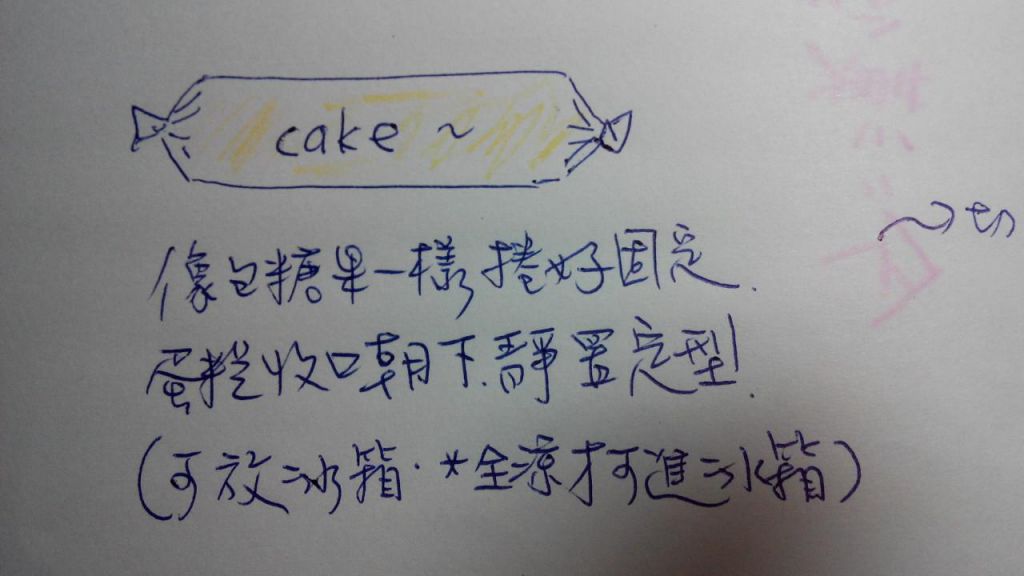 cake ~
像包糖果一樣, 捲好固定.
蛋糕收口朝下. 靜置定型.
(可放冰箱. *全涼才可進冰箱)
~切